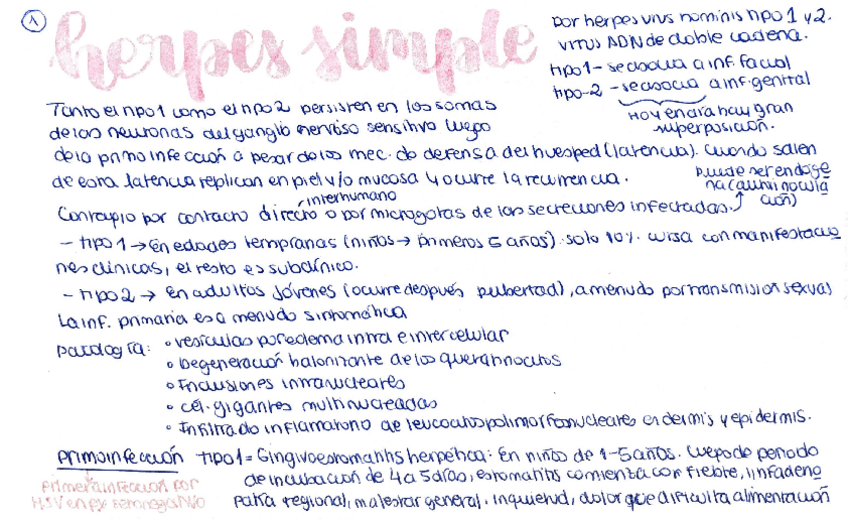 1
herpes simple
por herpes virus hominis tipo 1 y 2.
virus ADN de doble cadena.
tipo 1 - se asocia a inf. facial
tipo-2 - se asocia a inf. genital
Hoy en día hay gran
superposición.
Tanto el tipo 1 como el tipo 2 persisten en los somas
de las neuronas del ganglio nervioso sensitivo luego
de la primoinfección a pesar de los mec. de defensa del huesped (latencia). Cuando salen
de esta latencia replican en piel y/o mucosa y ocurre la recurrencia.
puede ser endóge
na (autoinocula
ción)
interhumano
Contagio por contacto directo o por microgotas de las secreciones infectadas.
- tipo 1 → en edades tempranas (niños → primeros 5 años). solo 10% cursa con manifestacio
nes clínicas, el resto es subclínico.
- tipo 2 → en adultos jóvenes (ocurre después pubertad), a menudo por transmisión sexual
La inf. primaria es a menudo sintomática
patología: ° vesículas por edema intra e intercelular
° Degeneración balonizante de los queratinocitos
° Inclusiones intranucleares
° cél. gigantes multinucleadas
° Infiltrado inflamatorio de leucocitos polimorfonucleares en dermis y epidermis.
primoinfección tipo 1 = Gingivoestomatitis herpética: En niños de 1-5 años. Luego de periodo
de incubación de 4 a 5 días, estomatitis comienza con fiebre, linfadeno
patía regional, malestar general. inquietud, dolor que dificulta alimentación
primera infección por
HSV en px seronegativo